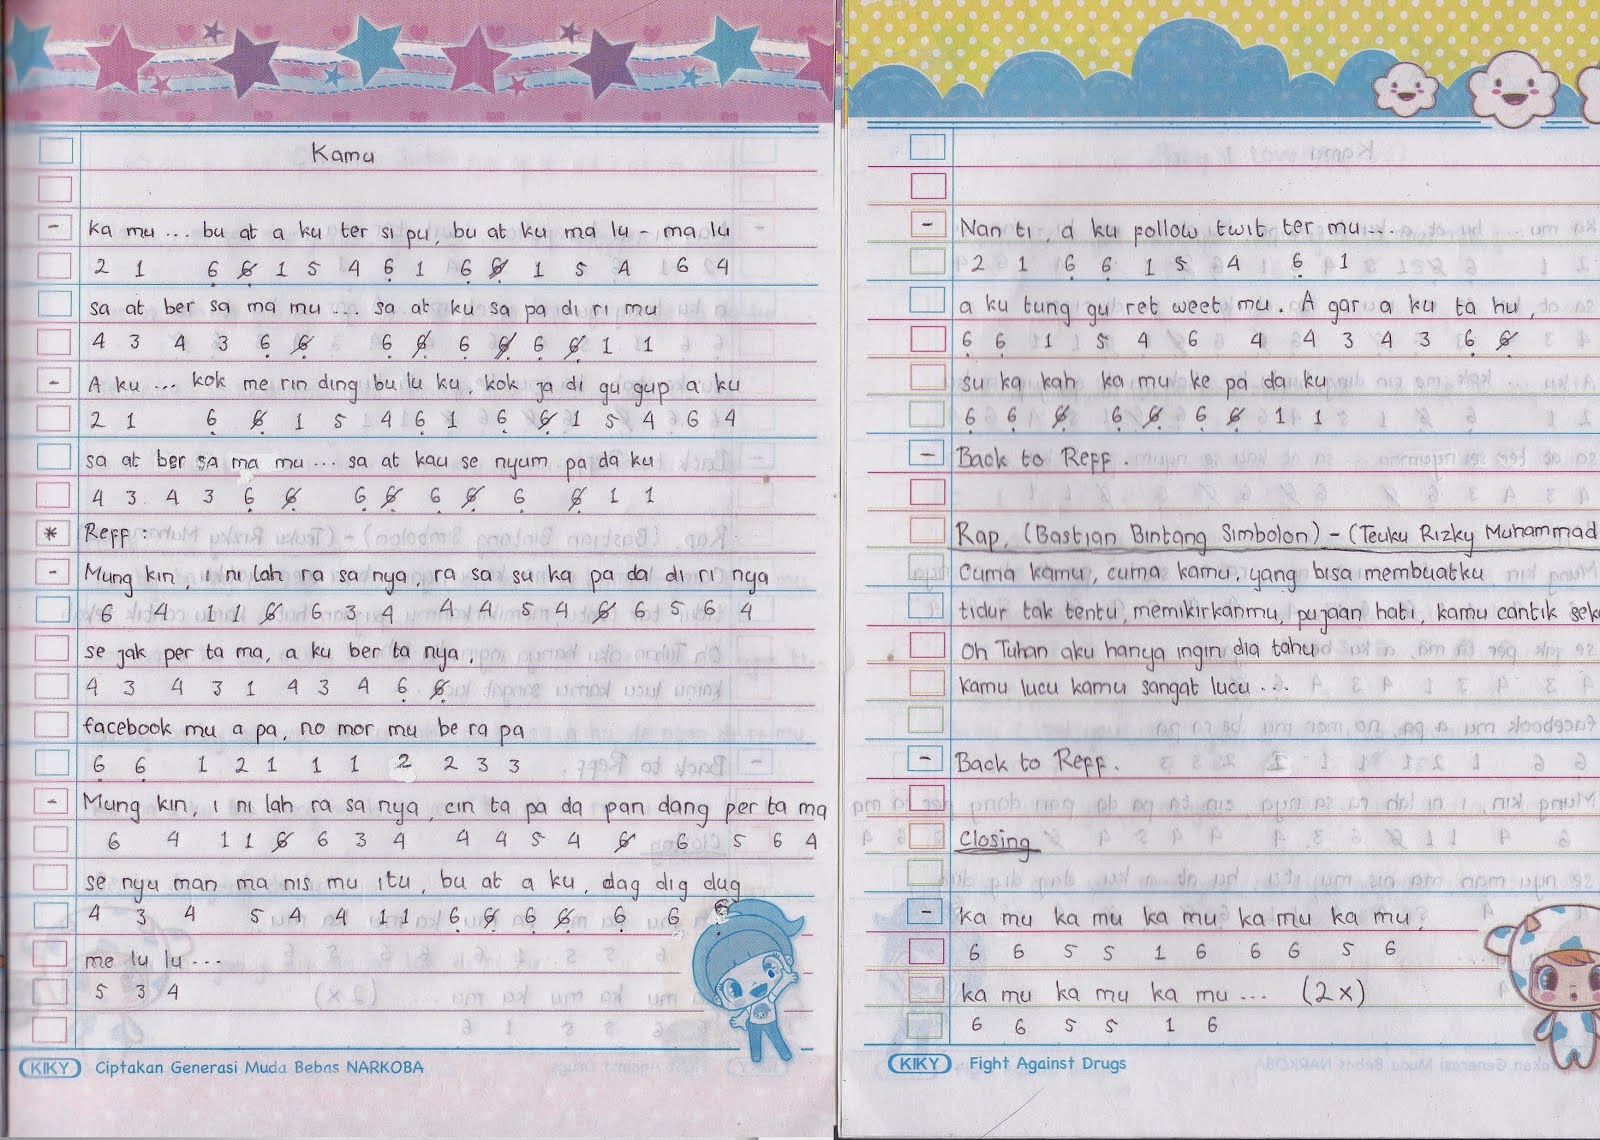 Kamu
- ka mu ... bu at a ku ter si pu, bu at ku ma lu - ma lu
2 1 6̣ 6̸̣ 1 5 4 6̣ 1 6̣ 6̸̣ 1 5 4 6 4
sa at ber sa ma mu ... sa at ku sa pa di ri mu
4 3 4 3 6̣ 6̸̣ 6̣ 6̸̣ 6̣ 6̸̣ 6̣ 6̸̣ 1 1
- A ku ... kok me rin ding bu lu ku. kok ja di gu gup a ku
2 1 6̣ 6̸̣ 1 5 4 6̣ 1 6̣ 6̸̣ 1 5 4 6 4
sa at ber sa ma mu ... sa at kau se nyum pa da ku
4 3 4 3 6̣ 6̸̣ 6̣ 6̸̣ 6̣ 6̸̣ 6̣ 6̸̣ 1 1
* Reff :
- Mung kin, i ni lah ra sa nya, ra sa su ka pa da di ri nya
6 4 1 1 6̸ 6 3 4 4 4 5 4 6̸ 6 5 6 4
se jak per ta ma, a ku ber ta nya,
4 3 4 3 1 4 3 4 6̣ 6̸̣
facebook mu a pa, no mor mu be ra pa
6̣ 6̣ 1 2 1 1 1 2 2 3 3
- Mung kin, i ni lah ra sa nya, cin ta pa da pan dang per ta ma
6 4 1 1 6̸ 6 3 4 4 4 5 4 6̸ 6 5 6 4
se nyu man ma nis mu itu, bu at a ku, dag dig dug
4 3 4 5 4 4 1 1 6̣ 6̸̣ 6̣ 6̸̣ 6̣ 6̣ 6̣
me lu lu ...
5 3 4
KIKY Ciptakan Generasi Muda Bebas NARKOBA
- Nan ti, a ku follow twit ter mu ...
2 1 6̣ 6̣ 1 5 4 6̣ 1
a ku tung gu ret weet mu. A gar a ku ta hu,
6̣ 6̣ 1 5 4 6 4 4 3 4 3 6̣ 6̸̣
su ka kah ka mu ke pa da ku
6̣ 6̣ 6̸̣ 6̣ 6̸̣ 6̣ 6̸̣ 1 1
- Back to Reff.
Rap, (Bastian Bintang Simbolon) - (Teuku Rizky Muhammad
Cuma kamu, cuma kamu, yang bisa membuatku
tidur tak tentu, memikirkanmu, pujaan hati, kamu cantik seka
Oh Tuhan aku hanya ingin dia tahu
Kamu lucu kamu sangat lucu ...
- Back to Reff.
Closing
- ka mu ka mu ka mu ka mu ka mu,
6 6 5 5 1 6 6 6 5 6
ka mu ka mu ka mu ... (2x)
6 6 5 5 1 6
KIKY Fight Against Drugs